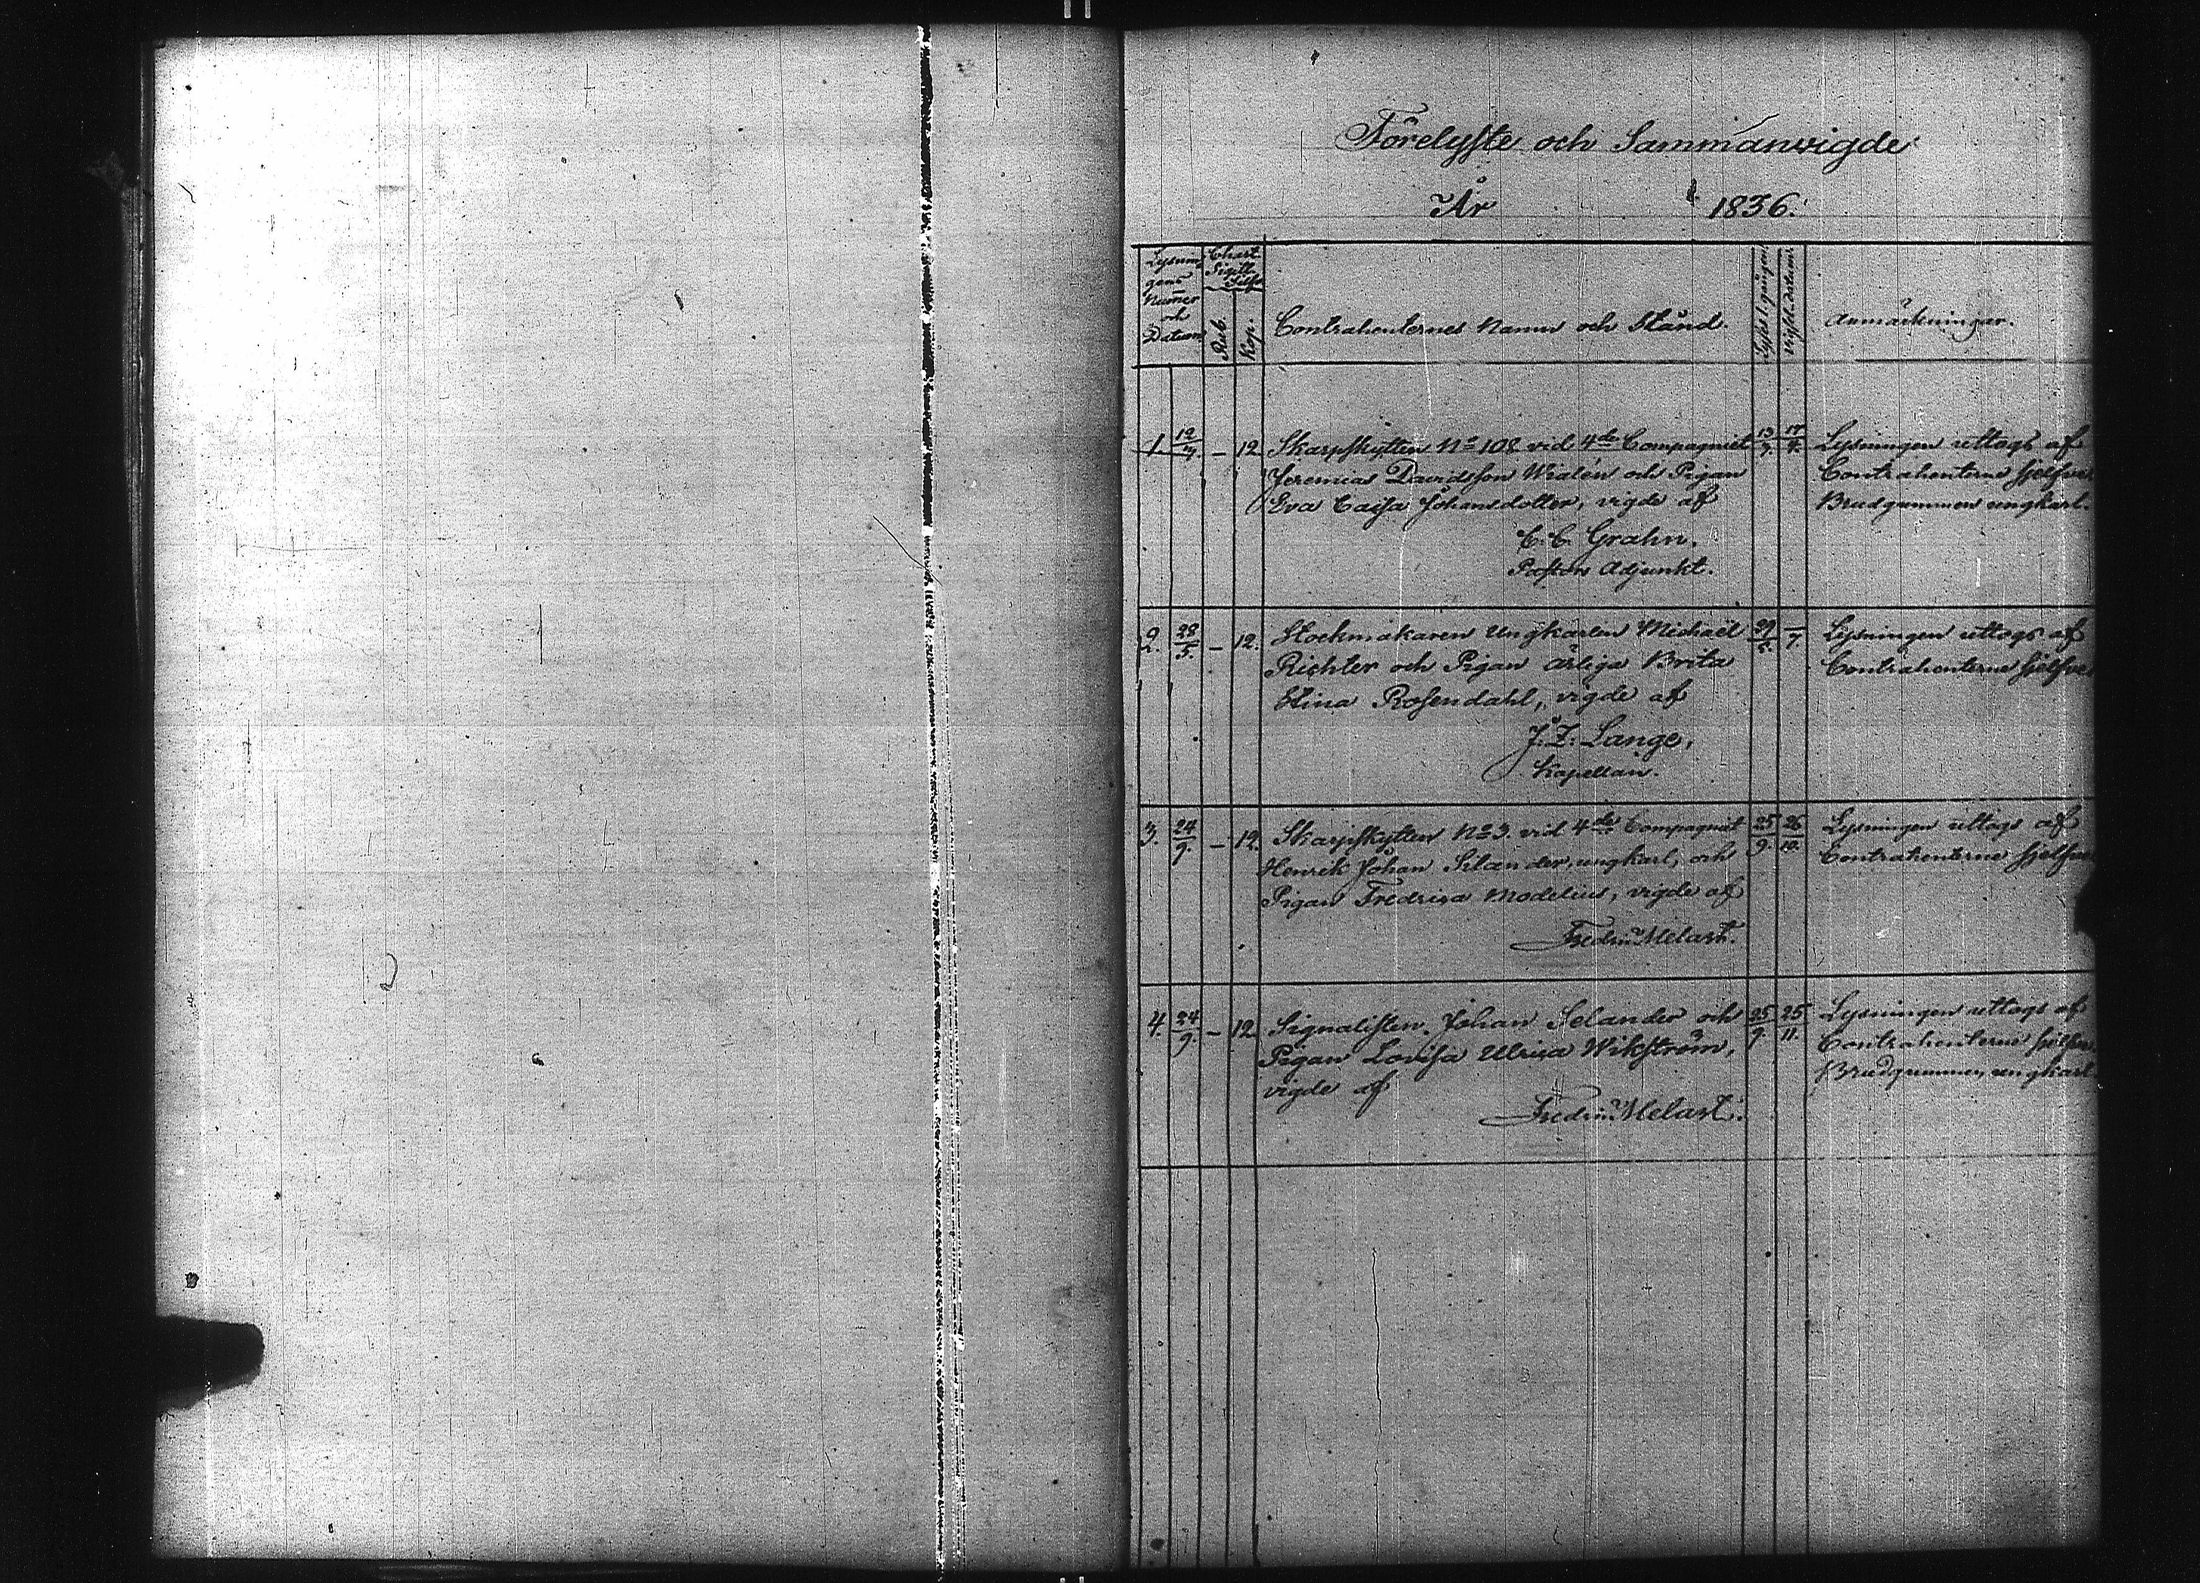 Förelyste och Sammanvigde
År 1836.
Lysnin-
gens
Numer
och
Datum
Chart.
Sigill.
Silfv.
Rub.
Kop.
Contrahenternes Namn och Stånd.
Lyst 1 gången
Vigsel datum
Anmärkningar.
1. 12/3 – 12 Skarpskytten No 108 vid 4de Compagniet 13/3
Jeremias Davidsson Wialén och Pigan
Eva Caisa Johansdotter, vigde af
C. C. Grahn.
Pastors Adjunkt.
Lysningen uttogs af
Contrahenterne sjelfve
Brudgummen ungkarl.
2. 28/5 – 12. Stockmakaren Ungkarlen Michaël 29/5 –/7.
Richter och Pigan ärliga Brita
Stina Rosendahl, vigde af
J. Z. Lange,
Kapellan.
Lysningen uttogs af
Contrahenterne sjelfve
3. 24/9. – 12 Skarpskytten No 3 vid 4de Compagniet 25/9. 26/10.
Henrik Johan Silander, ungkarl, och
Pigan Fredrica Modelius, vigde af
Fredr. Melart.
Lysningen uttogs af
Contrahenterne sjelfve
4. 24/9. – 12 Signalisten Johan Selander och 25/9. 25/11.
Pigan Lovisa Ulrica Wikström,
vigde af
Fredr. Melart.
Lysningen uttogs af
Contrahenterne sjelfve
Brudgummen ungkarl